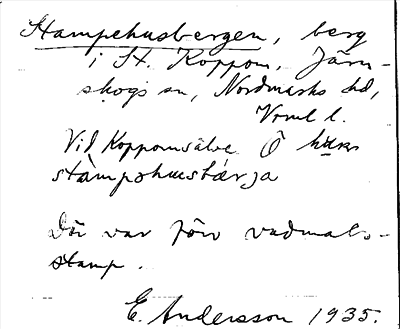 Stampehusbergen, berg
i St. Koppom, Järn-
skogs sn, Nordmarks hd,
Vrml l.
Vid Koppomsälve Ö
stàmpohusbærja
Där var förr vadmals-
stamp.
E. Andersson 1935.